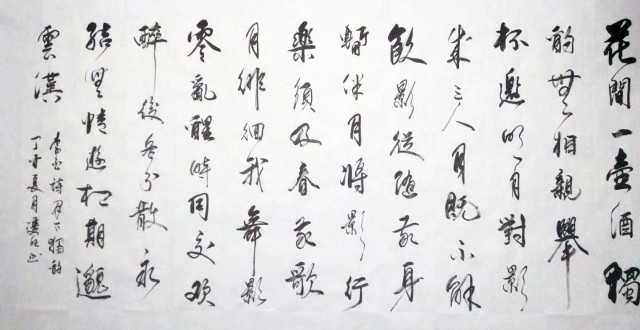 花間一壺酒獨
酌無相親舉
杯邀明月對影
成三人月既不解
飲影徒隨我身
暫伴月將影行
樂須及春我歌
月徘徊我舞影
零亂醒時同交歡
醉後各分散永
結無情遊相期邈
雲漢
李白詩月下獨酌
丁亥夏月